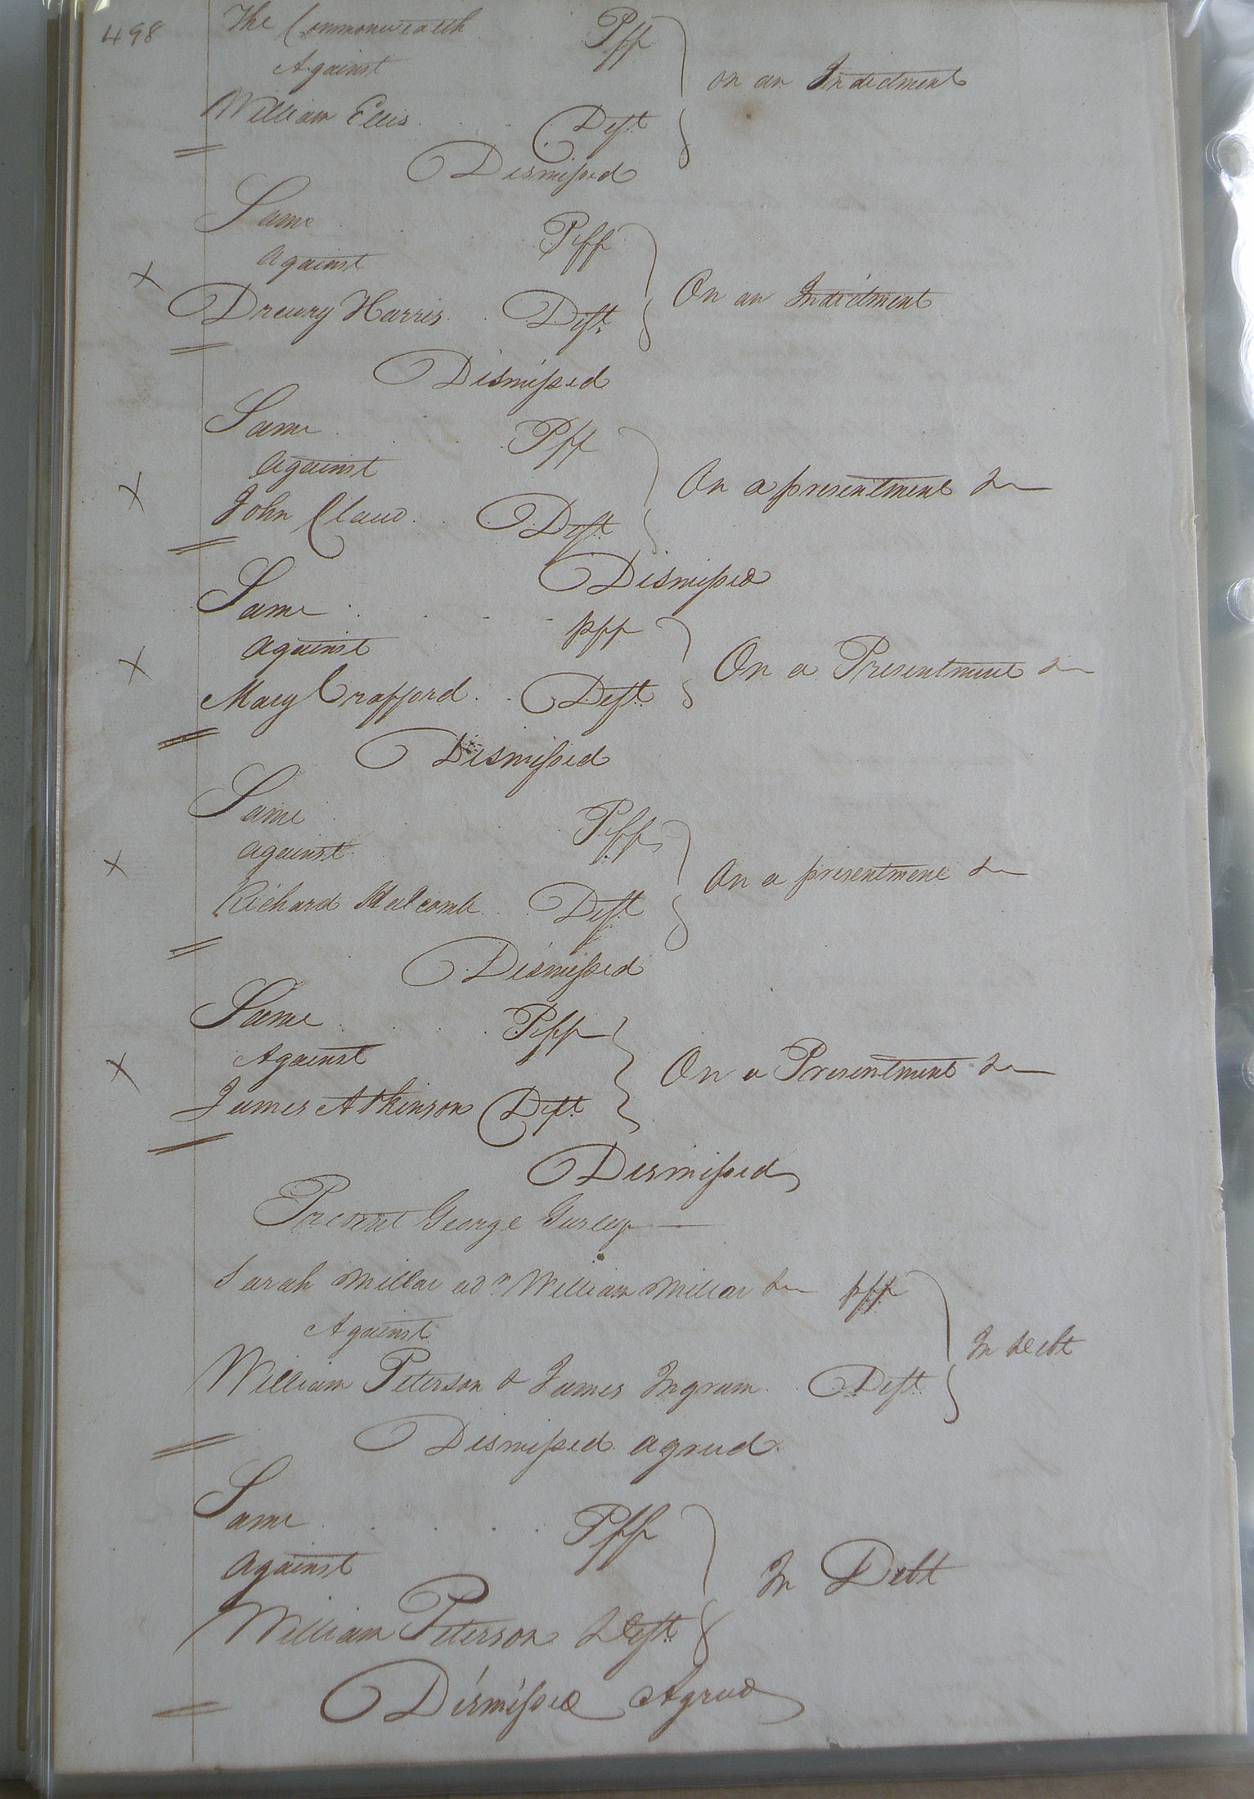 498
The Commonwealth Pff
Against
on an Indictment
William Ellis Deft
Dismissed
Same Pff
against
On an Indictment
Drewry Harris Deft
Dismissed
Same Pff
against
On a presentment &c
John Claud Deft
Dismissed
Same pff
against
On a Presentment &c
Mary Crafford Deft
Dismissed
Same Pff
against
On a presentment &c
Richard Deft
Dismissed
Same Pff
Against
On a Presentment &c
James Atkinson Deft
Dismissed
Present George Gurley
Sarah Millar adr William Millar &c pff
Against
In debt
William Peterson & James Ingram Deft
Dismissed agreed
Same Pff
against
In Debt
William Peterson Deft
Dismissed Agreed